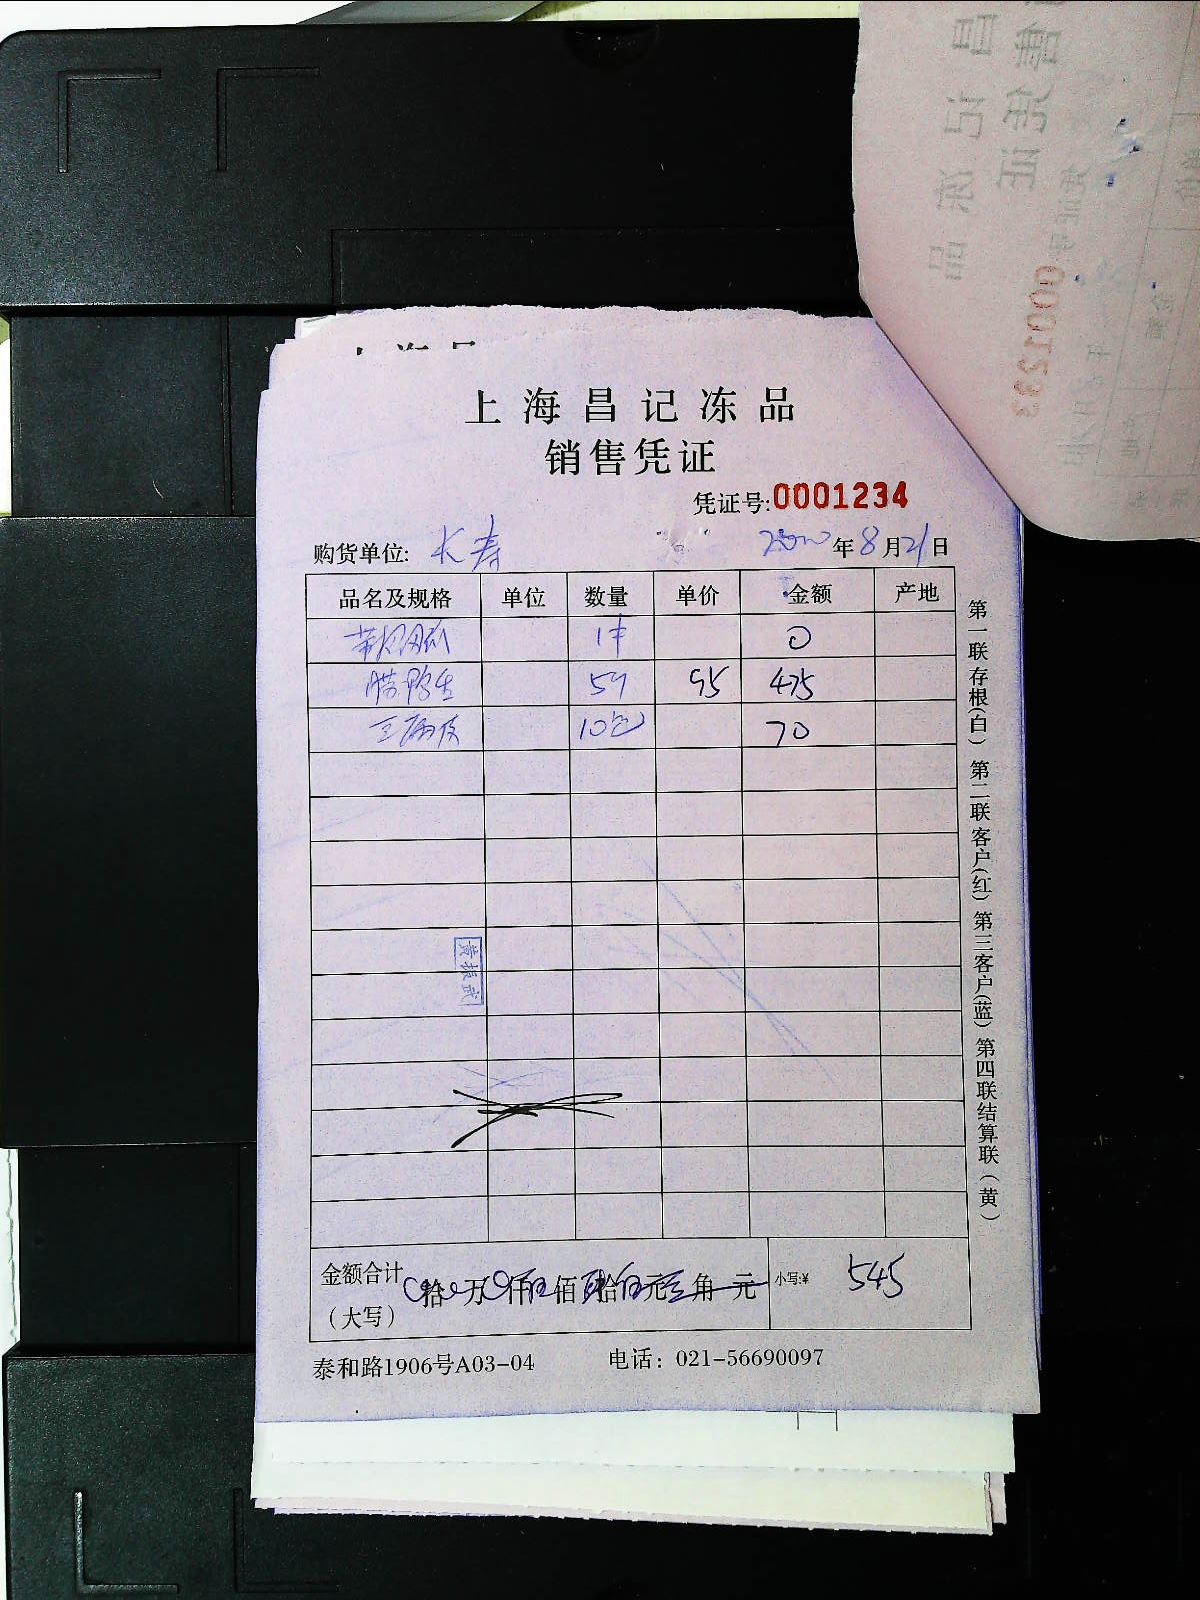 上海昌记冻品
销售凭证
凭证号:0001234
购货单位: 长寿 年8月21日
品名及规格 单位 数量 单价 金额 产地
1件 0
5个 95 475
10包 70
黄振武
金额合计 拾 万 仟 伍 佰 肆 拾 伍 元 角 元 小写:¥ 545
(大写)
泰和路1906号A03-04 电话: 021-56690097
第一联存根(白) 第二联客户(红) 第三客户(蓝) 第四联结算联(黄)
0001233